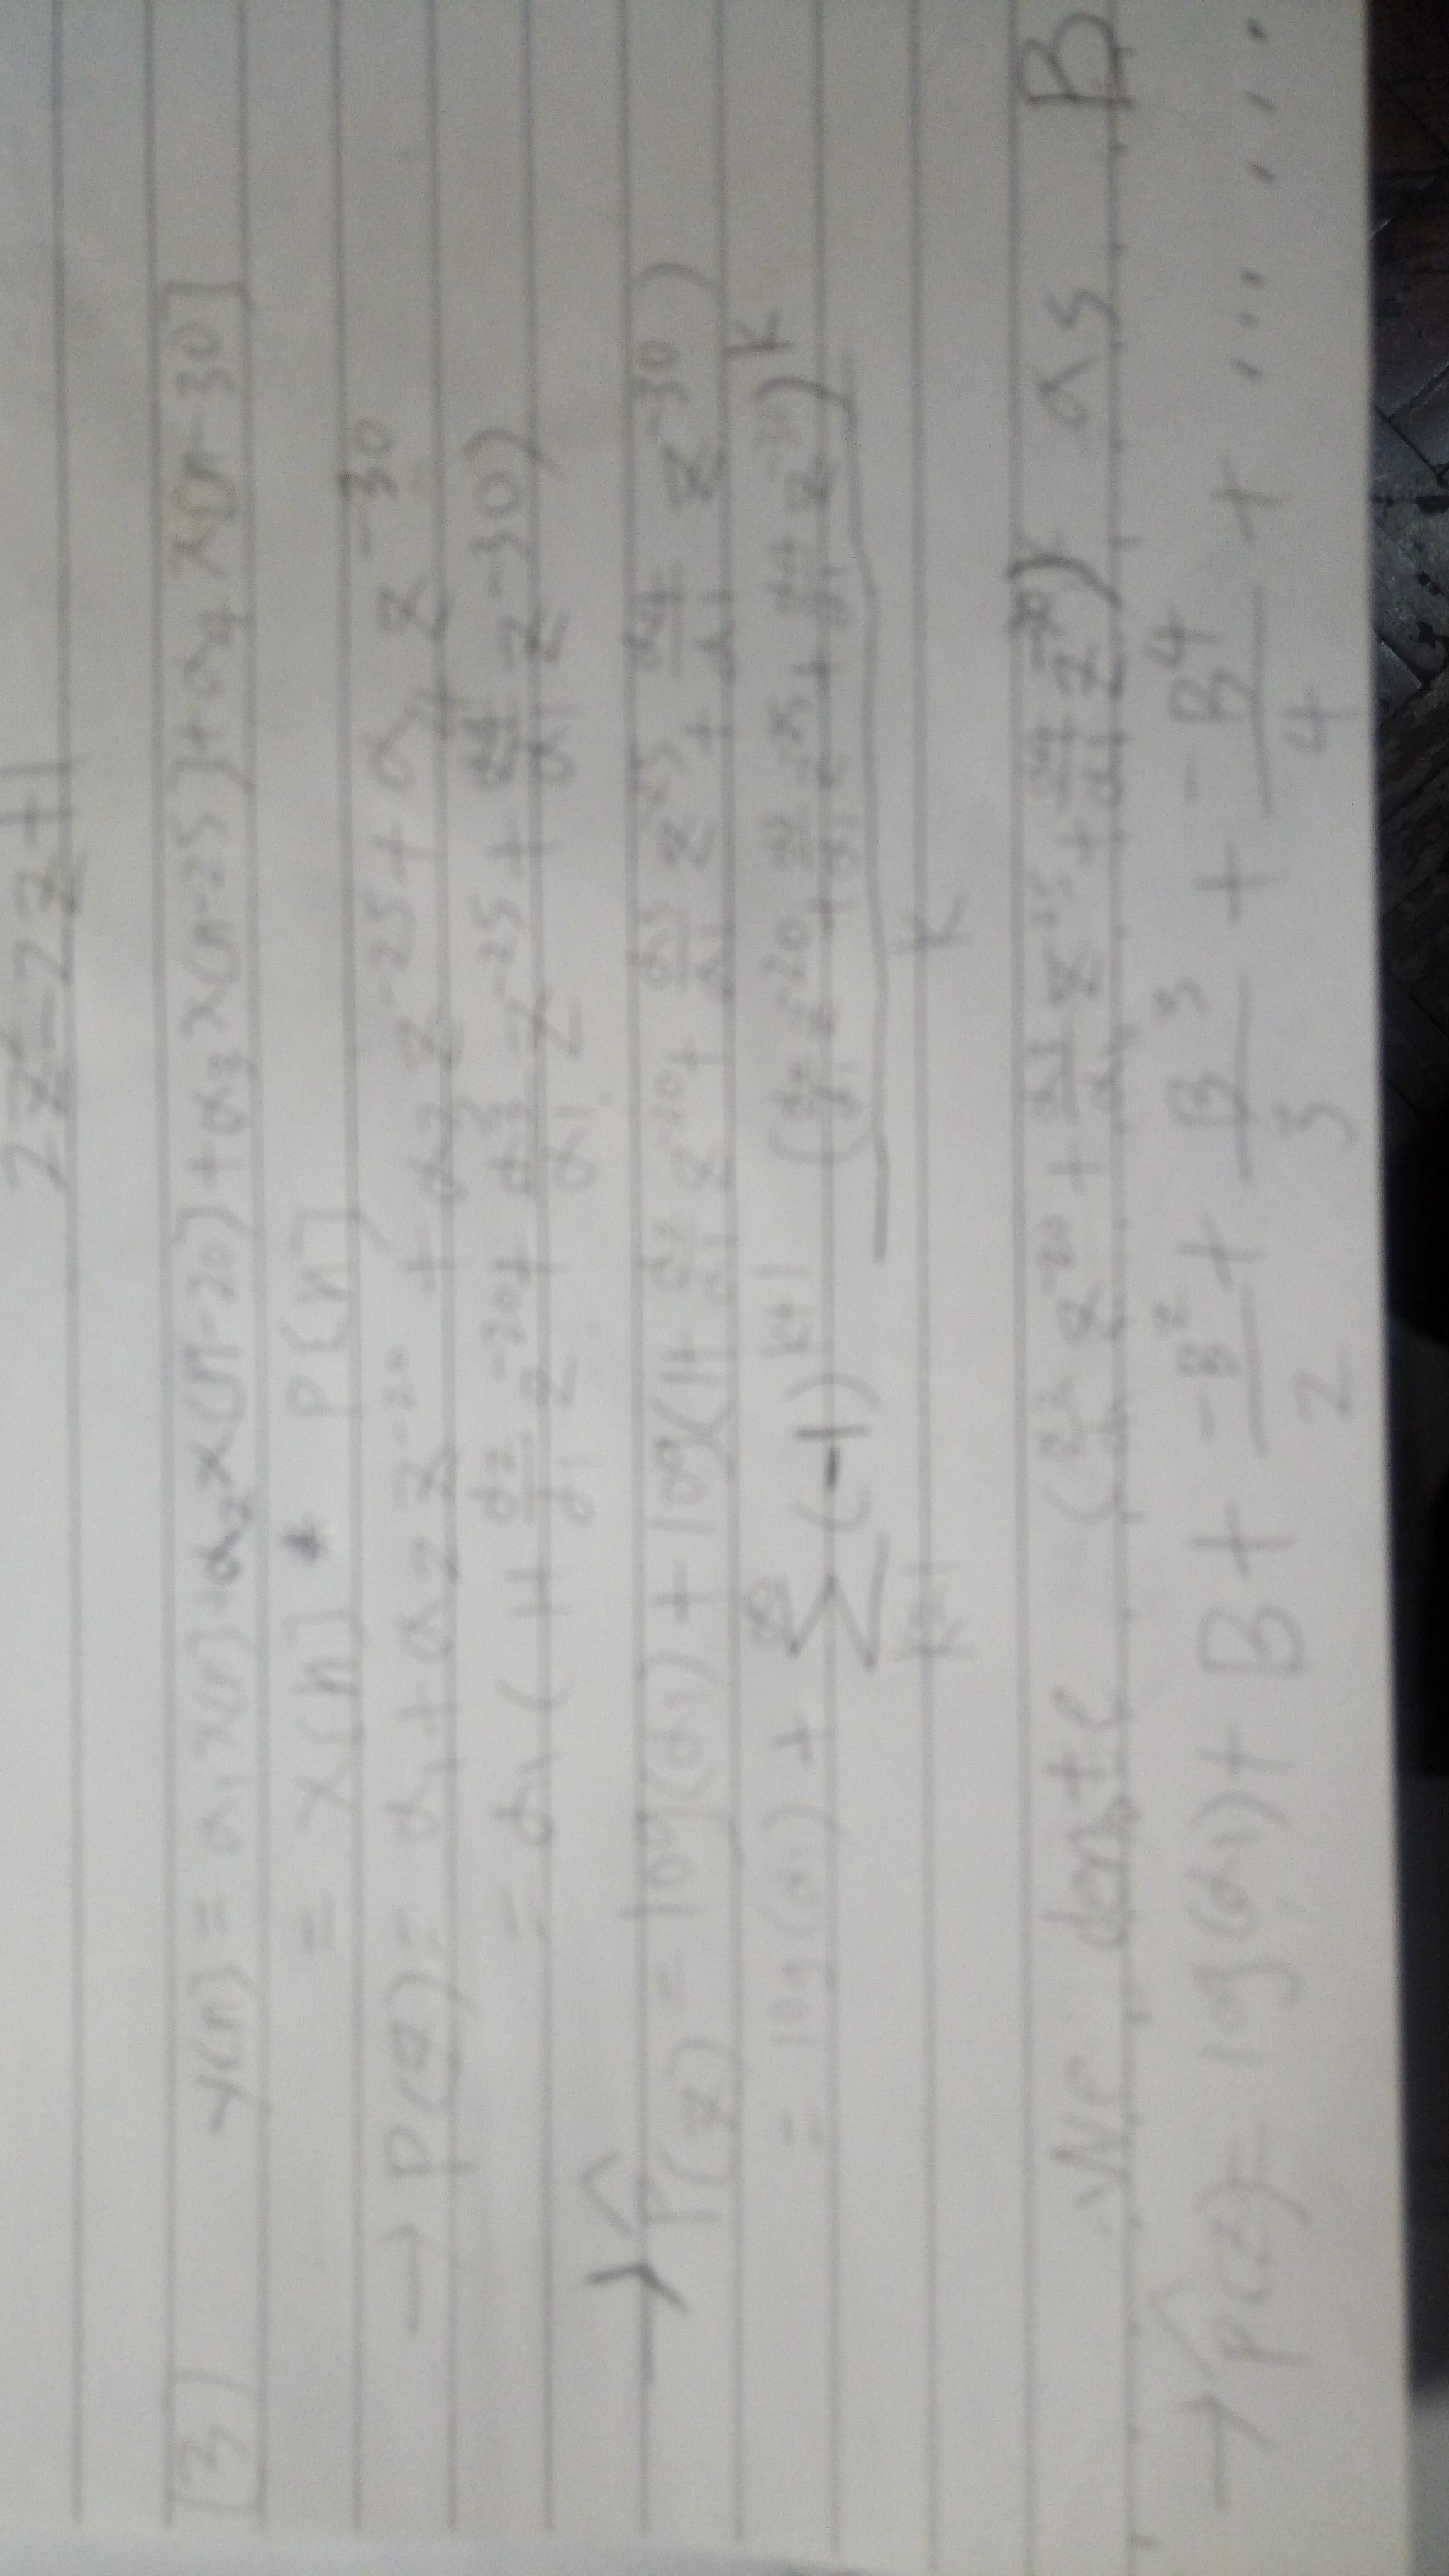 2z²-2z+1
[3] y[n] = α₁x[n]+α₂x[n-20]+α₃x[n-25]+α₄x[n-30]
= x[n] * p[n]
→ P(z) = α₁+α₂z⁻²⁰ + α₃z⁻²⁵ + α₄z⁻³⁰
= α₁(1+ α₂/α₁ z⁻²⁰ + α₃/α₁ z⁻²⁵ + α₄/α₁ z⁻³⁰)
→ P̂(z) = log(α₁) + log(1+ α₂/α₁ z⁻²⁰ + α₃/α₁ z⁻²⁵ + α₄/α₁ z⁻³⁰)
= log(α₁) + ∑_{k=1}^{∞} (-1)^{k+1} (α₂/α₁ z⁻²⁰ + α₃/α₁ z⁻²⁵ + α₄/α₁ z⁻³⁰)^k / k
We denote (α₂/α₁ z⁻²⁰ + α₃/α₁ z⁻²⁵ + α₄/α₁ z⁻³⁰) as B
→ P̂(z) = log(α₁) + B + -B²/2 + B³/3 + -B⁴/4 + ... ...